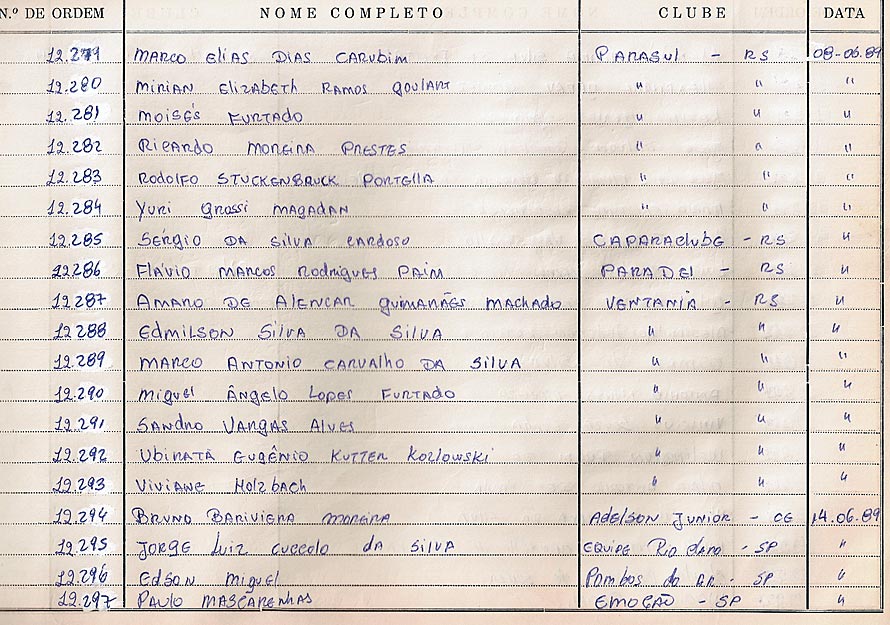 N.º DE ORDEM NOME COMPLETO CLUBE DATA
12.279 MARCO ELIAS DIAS CARUBIM PARASUL - RS 08-06.89
12.280 MIRIAN ELIZABETH RAMOS GOULART " " "
12.281 MOISÉS FURTADO " " "
12.282 RICARDO MOREIRA PRESTES " " "
12.283 RODOLFO STUCKENBRUCK PORTELLA " " "
12.284 YURI GROSSI MAGADAN " " "
12.285 SÉRGIO DA SILVA CARDOSO CAPARACLUBE - RS "
12286 FLÁVIO MARCOS RODRIGUES PAIM PARADEI - RS "
12.287 AMARO DE ALENCAR GUIMARÃES MACHADO VENTANIA - RS "
12288 EDMILSON SILVA DA SILVA " " "
12.289 MARCO ANTONIO CARVALHO DA SILVA " " "
12.290 MIGUEL ÂNGELO LOPES FURTADO " " "
12.291 SANDRO VARGAS ALVES " " "
12.292 UBIRATÃ EUGÊNIO KUTTER KOZLOWSKI " " "
12.293 VIVIANE HOLZBACH " " "
12.294 BRUNO BARIVIERA MOREIRA ADELSON JUNIOR - CE 14.06.89
12.295 JORGE LUIZ CUCCOLO DA SILVA EQUIPE RIO CLARO - SP "
12.296 EDSON MIGUEL POMBOS DO AR - SP "
12.297 PAULO MASCARENHAS EMOÇÃO - SP "